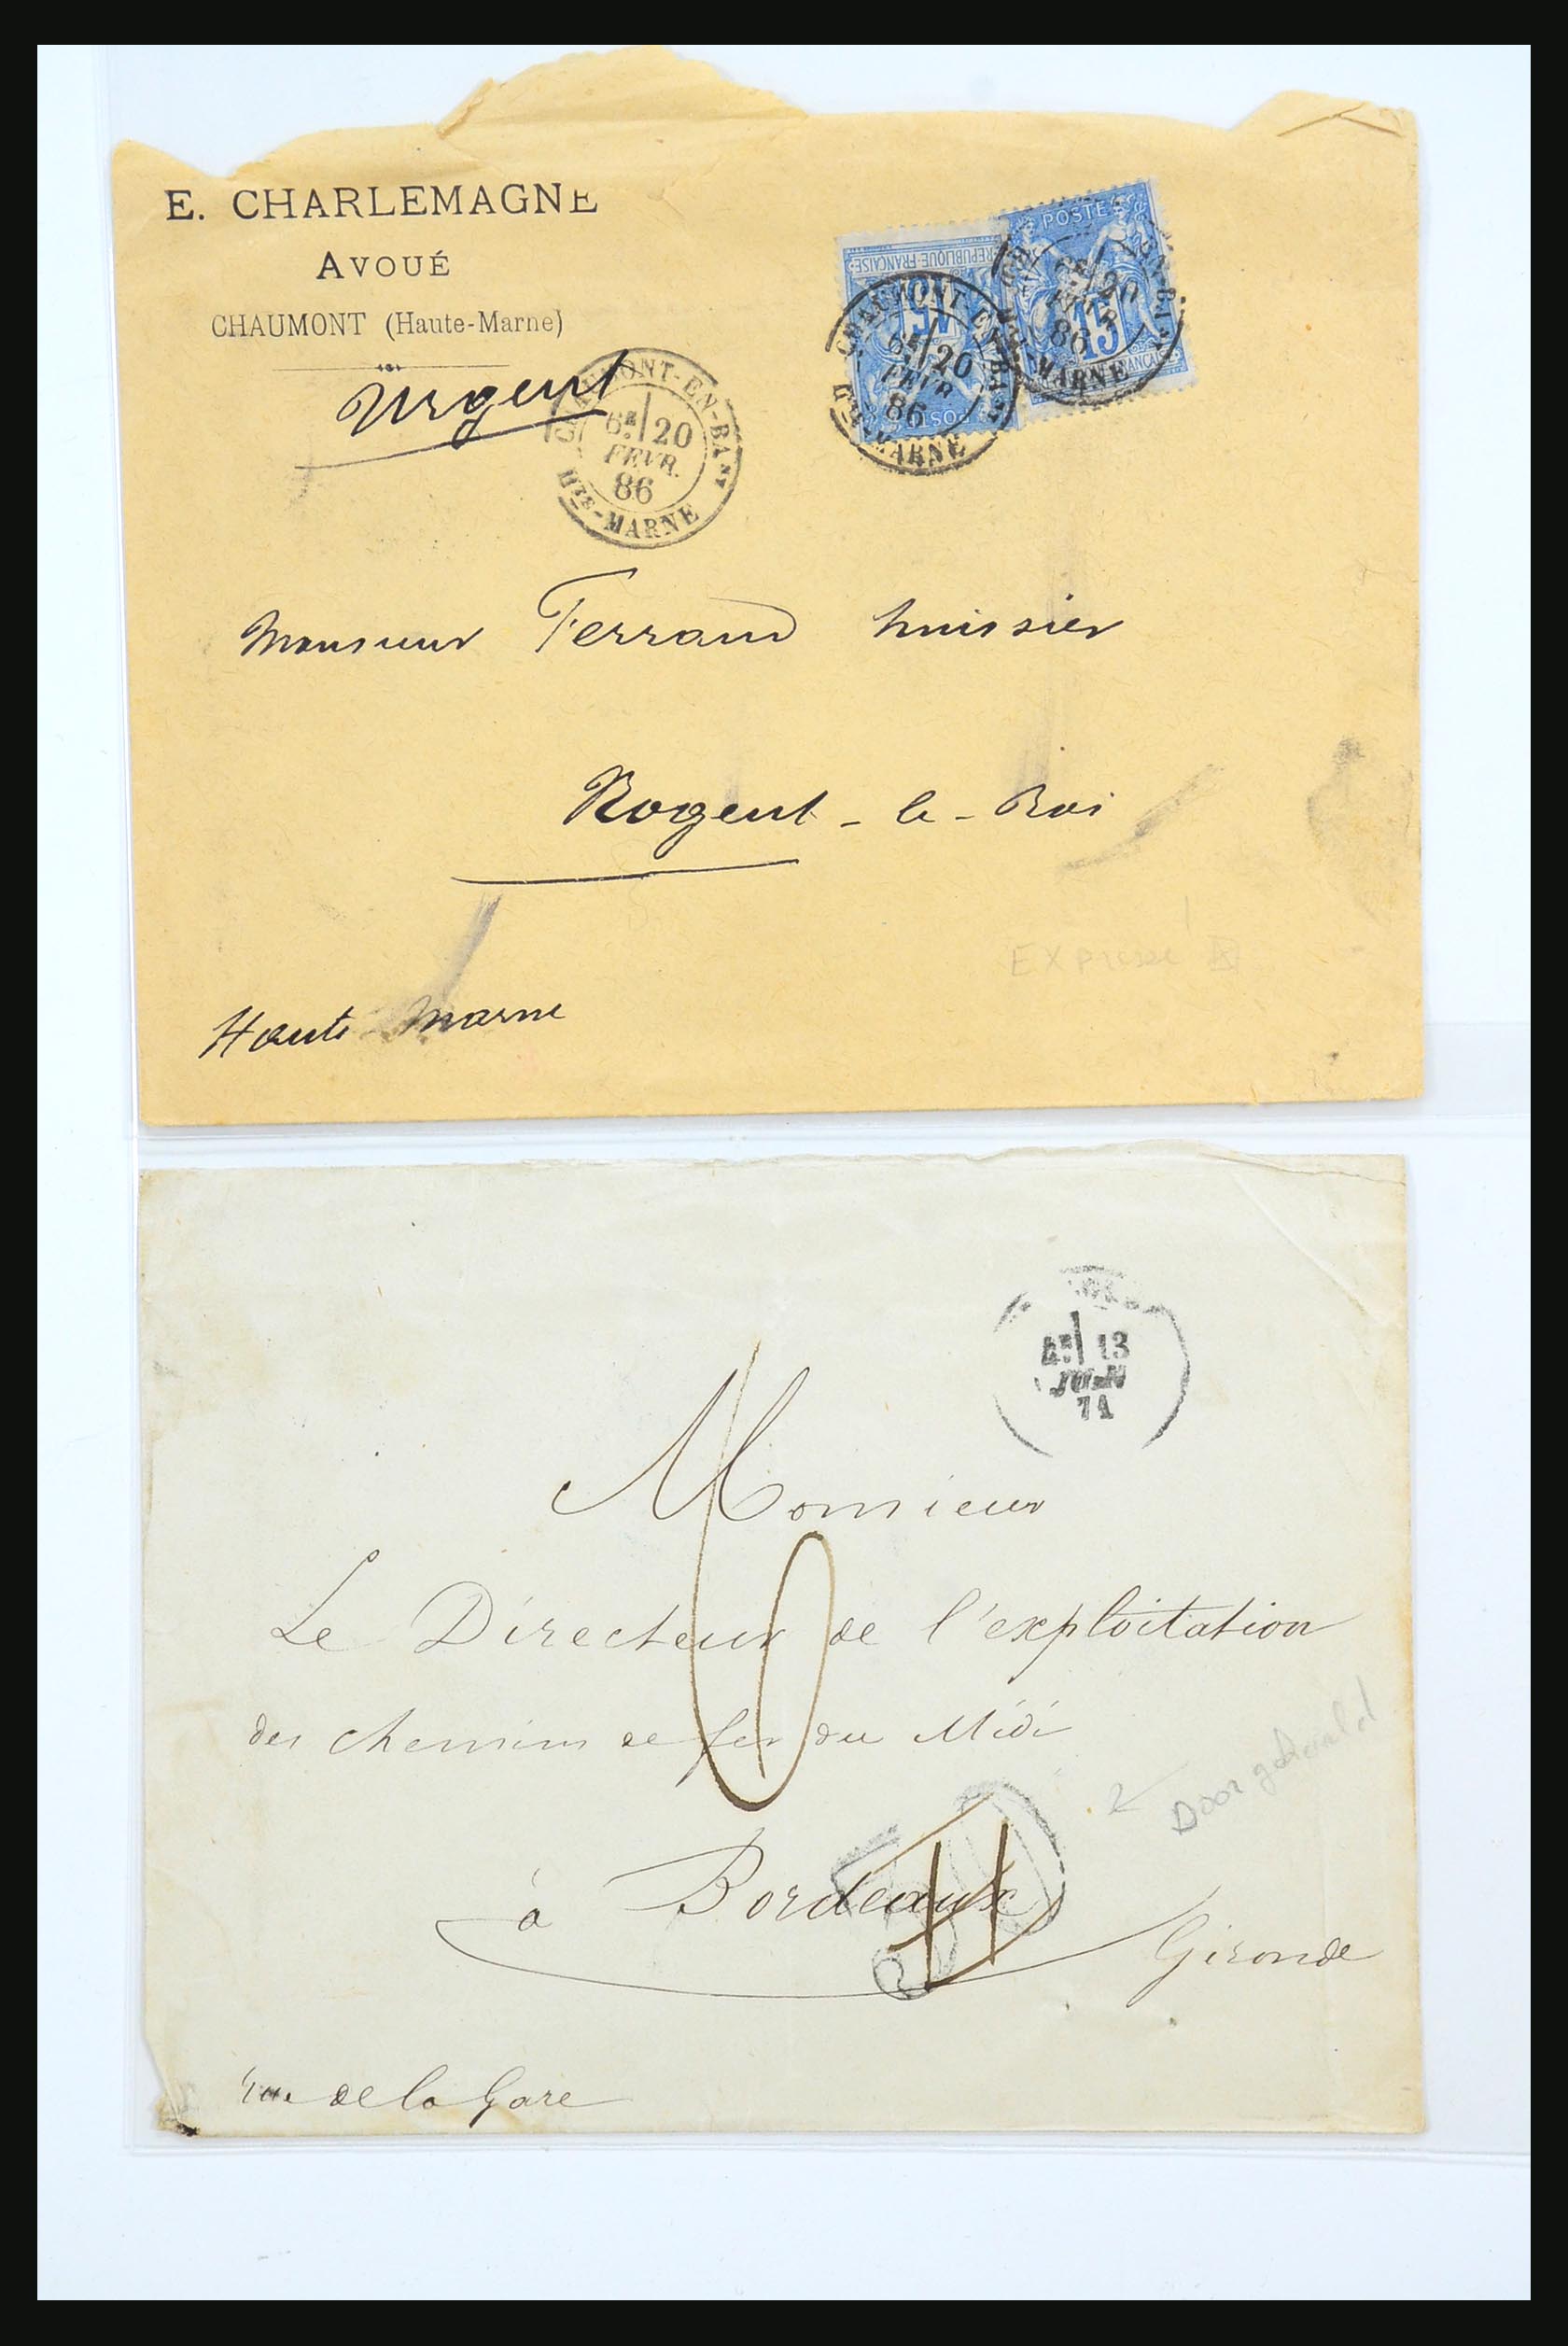 E. CHARLEMAGNE
AVOUÉ
CHAUMONT (Haute-Marne)
Urgent
CHAUMONT-EN-BASSY
6E 20
FEVR.
86
HTE-MARNE
REPUBLIQUE FRANÇAISE
15
CHAUMONT-EN-BASSY
6E 20
FEVR
86
HTE-MARNE
POSTE
15
20
FEVR
86
MARNE
Monsieur Ferrand huissier
Nogent-le-Roi
Expresse
Haute Marne
13
JUIN
71
Monsieur
Le Directeur de l'exploitation
des chemins de fer du Midi
à Bordeaux
Gironde
rue de la Gare